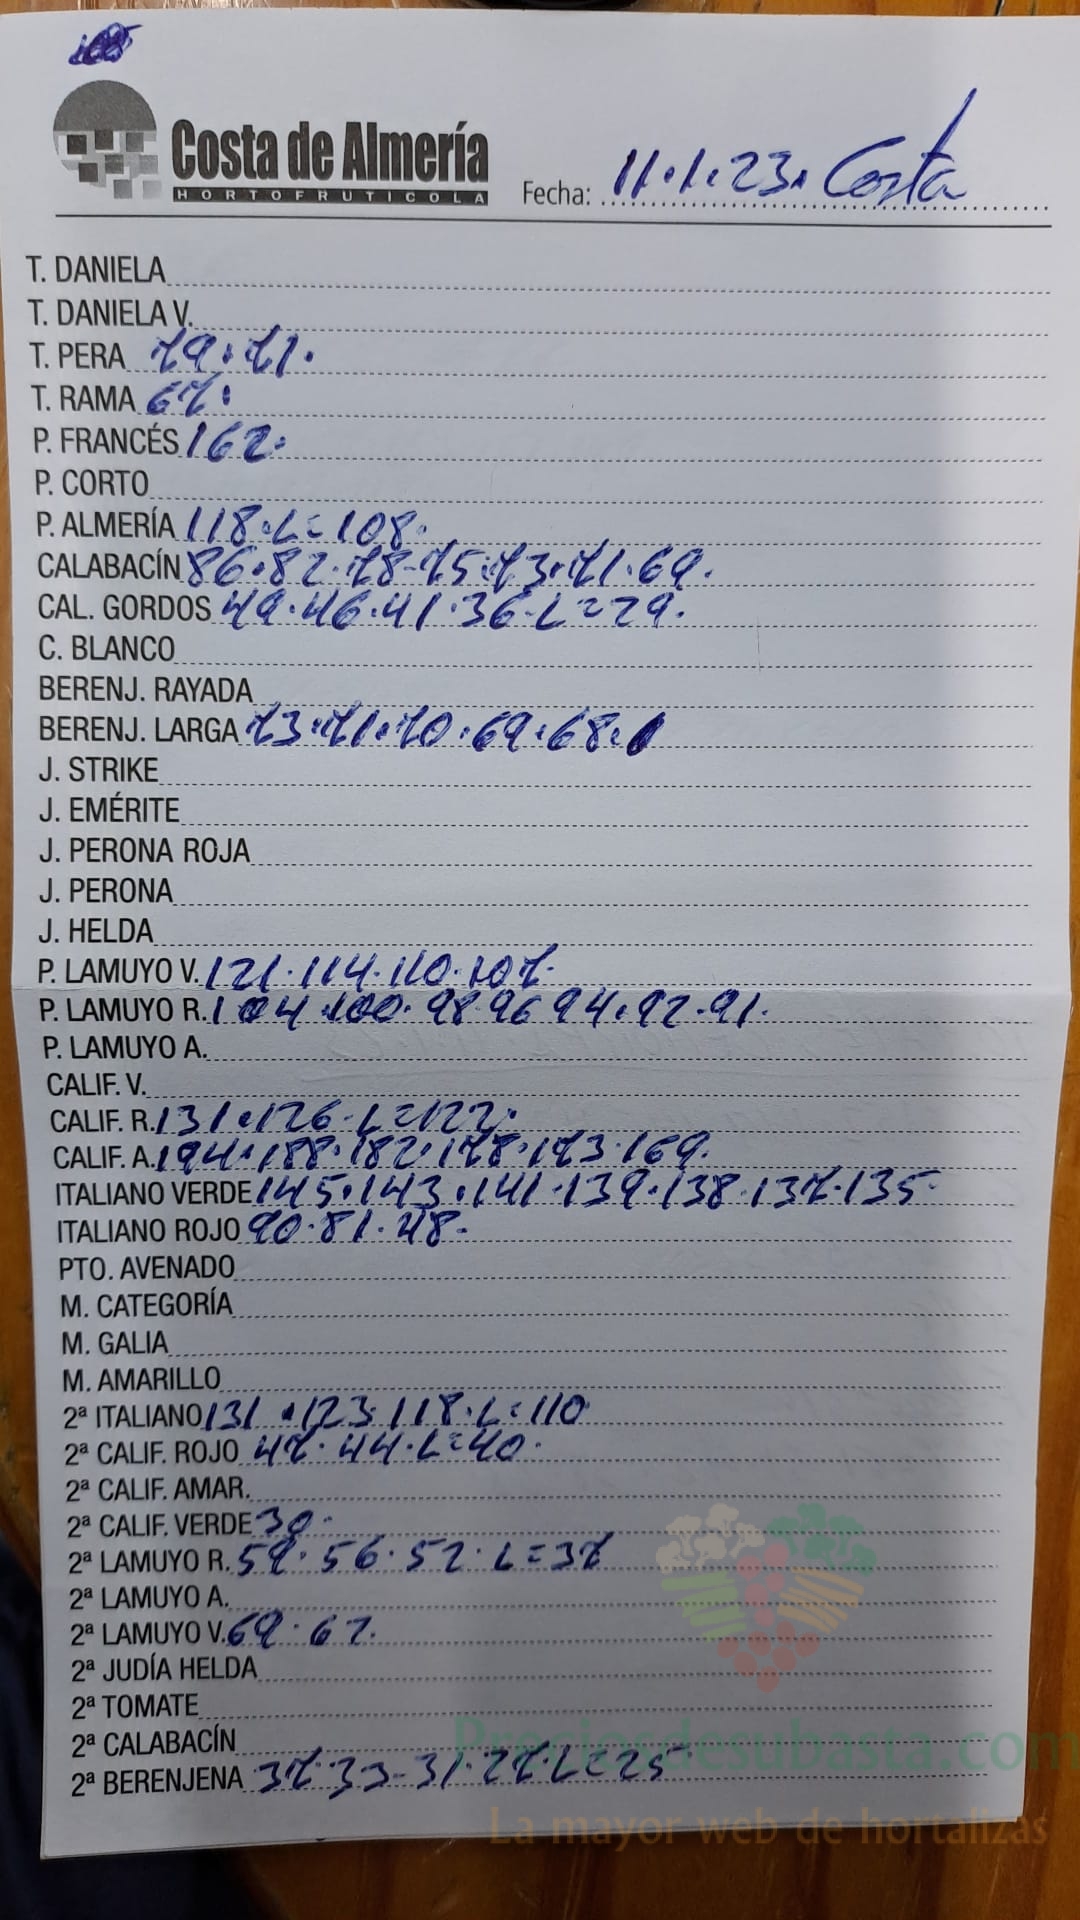 Costa de Almería
HORTOFRUTICOLA
Fecha: 11.1.23. Costa
T. DANIELA
T. DANIELA V.
T. PERA 79.71.
T. RAMA 67.
P. FRANCÉS 162.
P. CORTO
P. ALMERÍA 118.L=108.
CALABACÍN 86.82.78-75.73.71.69.
CAL. GORDOS 49.46.41.36-L=29.
C. BLANCO
BERENJ. RAYADA
BERENJ. LARGA 73.71.70.69.68.
J. STRIKE
J. EMÉRITE
J. PERONA ROJA
J. PERONA
J. HELDA
P. LAMUYO V. 121.114.110.107.
P. LAMUYO R. 104.100.98.96 94.92.91.
P. LAMUYO A.
CALIF. V.
CALIF. R. 131.126-L=122.
CALIF. A. 194.188.182.178.173.169.
ITALIANO VERDE 145.143.141.139.138.137.135.
ITALIANO ROJO 90.81.
PTO. AVENADO
M. CATEGORÍA
M. GALIA
M. AMARILLO
2ª ITALIANO 131.123.118.L=110
2ª CALIF. ROJO 47.44.L=40.
2ª CALIF. AMAR.
2ª CALIF. VERDE 30.
2ª LAMUYO R. 59.56.52.L=37
2ª LAMUYO A.
2ª LAMUYO V. 69.62.
2ª JUDÍA HELDA
2ª TOMATE
2ª CALABACÍN
2ª BERENJENA 37.33-31.27.L=25
Preciosdesubasta.com
La mayor web de hortalizas